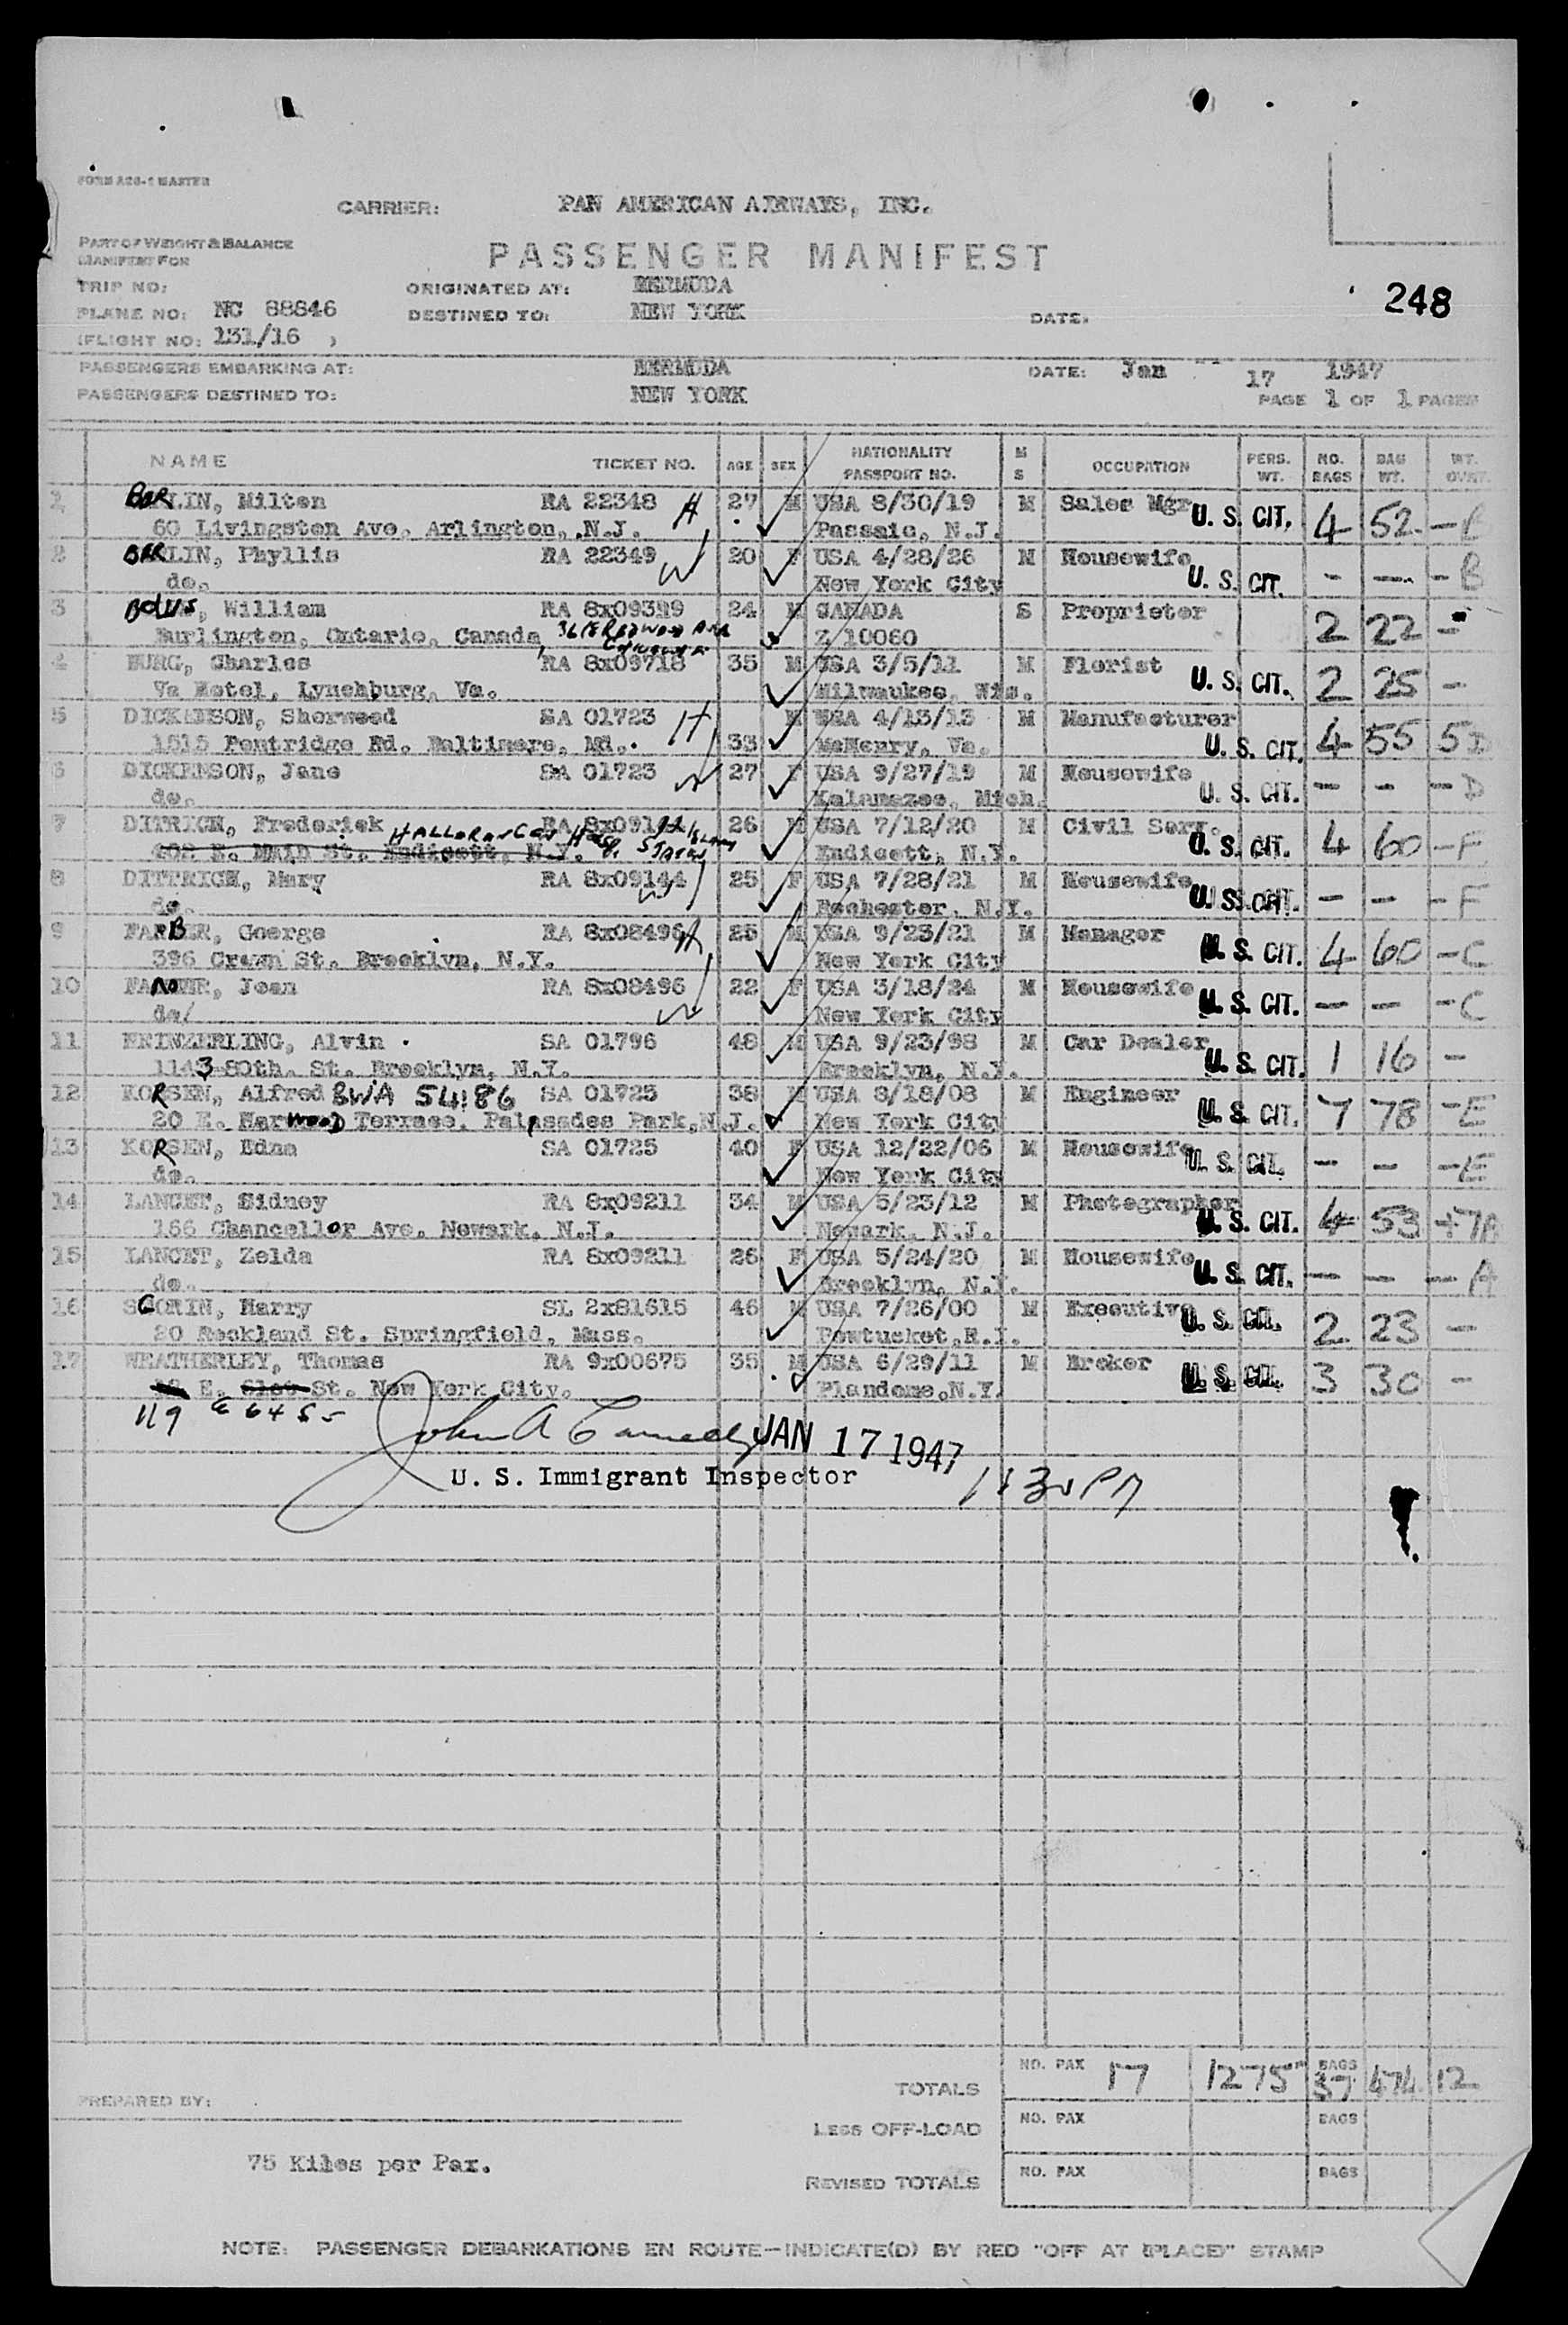 FORM ACS-1 MASTER
CARRIER: PAN AMERICAN AIRWAYS, INC.
PART OF WEIGHT & BALANCE
MANIFEST FOR
PASSENGER MANIFEST
TRIP NO: ORIGINATED AT: BERMUDA
248
PLANE NO: NC 88846 DESTINED TO: NEW YORK DATE:
(FLIGHT NO: 131/16 )
PASSENGERS EMBARKING AT: BERMUDA DATE: Jan 17 1947
PASSENGERS DESTINED TO: NEW YORK PAGE 1 OF 1 PAGES
NAME TICKET NO. AGE SEX NATIONALITY PASSPORT NO. M S OCCUPATION PERS. WT. NO. BAGS BAG WT. WT. OVRT.
1 BERLIN, Milton RA 22348 H 27 M USA 8/30/19 M Sales Mgr U. S. CIT. 4 52 -B
60 Livingston Ave. Arlington, .N.J. Passaic, N.J.
2 BERLIN, Phyllis RA 22349 W 20 F USA 4/28/26 M Housewife U. S. CIT. - - - B
do. New York City
3 BOLUS, William RA 8x09399 24 M CANADA S Proprietor 2 22 -
Burlington, Ontario, Canada Z 10060
4 BURG, Charles RA 8x09718 35 M USA 3/5/11 M Florist U. S. CIT. 2 25 -
Va Hotel, Lynchburg, Va. Milwaukee, Wis.
5 DICKENSON, Sherwood SA 01723 H 33 M USA 4/13/13 M Manufacturer U. S. CIT. 4 55 5D
1515 Pentridge Rd. Baltimore, Md. McHenry, Va.
6 DICKENSON, Jane SA 01723 W 27 F USA 9/27/19 M Housewife U. S. CIT. - - - D
do. Kalamazoo, Mich.
7 DITRICH, Frederick RA 8x09144 H 26 M USA 7/12/20 M Civil Serv. U. S. CIT. 4 60 -F
HALLORAN GEN HOSP. STATEN ISLAND
402 E. MAIN St. Endicott, N.Y. Endicott, N.Y.
8 DITTRICH, Mary RA 8x09144 W 25 F USA 7/28/21 M Housewife U. S. CIT. - - - F
do. Rochester, N.Y.
9 FARBER, Goerge RA 8x08496 H 25 M USA 9/23/21 M Manager U. S. CIT. 4 60 -C
396 Crown St. Brooklyn, N.Y. New York City
10 , Joan RA 8x08496 W 22 F USA 3/18/24 M Housewife U. S. CIT. - - -C
do/ New York City
11 HEINZERLING, Alvin SA 01796 48 M USA 9/23/98 M Car Dealer U. S. CIT. 1 16 -
1143 80th. St. Brooklyn, N.Y. Brooklyn, N.Y.
12 KORSEN, Alfred BWIA 54186 SA 01725 38 M USA 8/18/08 M Engineer U. S. CIT. 7 78 -E
20 E. Harwood Terrace. Palasades Park, N.J. New York City
13 KORSEN, Edna SA 01725 40 F USA 12/22/06 M Housewife U. S. CIT. - - -E
do. New York City
14 LANCET, Sidney RA 8x09211 34 M USA 5/23/12 M Photographer U. S. CIT. 4 53 +7A
166 Chancellor Ave. Newark, N.J. Newark, N.J.
15 LANCET, Zelda RA 8x09211 26 F USA 5/24/20 M Housewife U. S. CIT. - - - A
do. Brooklyn, N.Y.
16 SCORIN, Harry SL 2x81615 46 M USA 7/26/00 M Executive U. S. CIT. 2 23 -
20 Rockland St. Springfield, Mass. Pawtucket, R.I.
17 WEATHERLEY, Thomas RA 9x00675 35 M USA 6/29/11 M Broker U. S. CIT. 3 30 -
E. St. New York City. Plandome, N.Y.
119 E 64 St
John A JAN 17 1947
U. S. Immigrant Inspector 1130 PM
TOTALS NO. PAX 17 1275 BAGS 37 474 12
PREPARED BY:
LESS OFF-LOAD NO. PAX BAGS
75 Kilos per Pax.
REVISED TOTALS NO. PAX BAGS
NOTE: PASSENGER DEBARKATIONS EN ROUTE—INDICATE(D) BY RED "OFF AT (PLACE)" STAMP